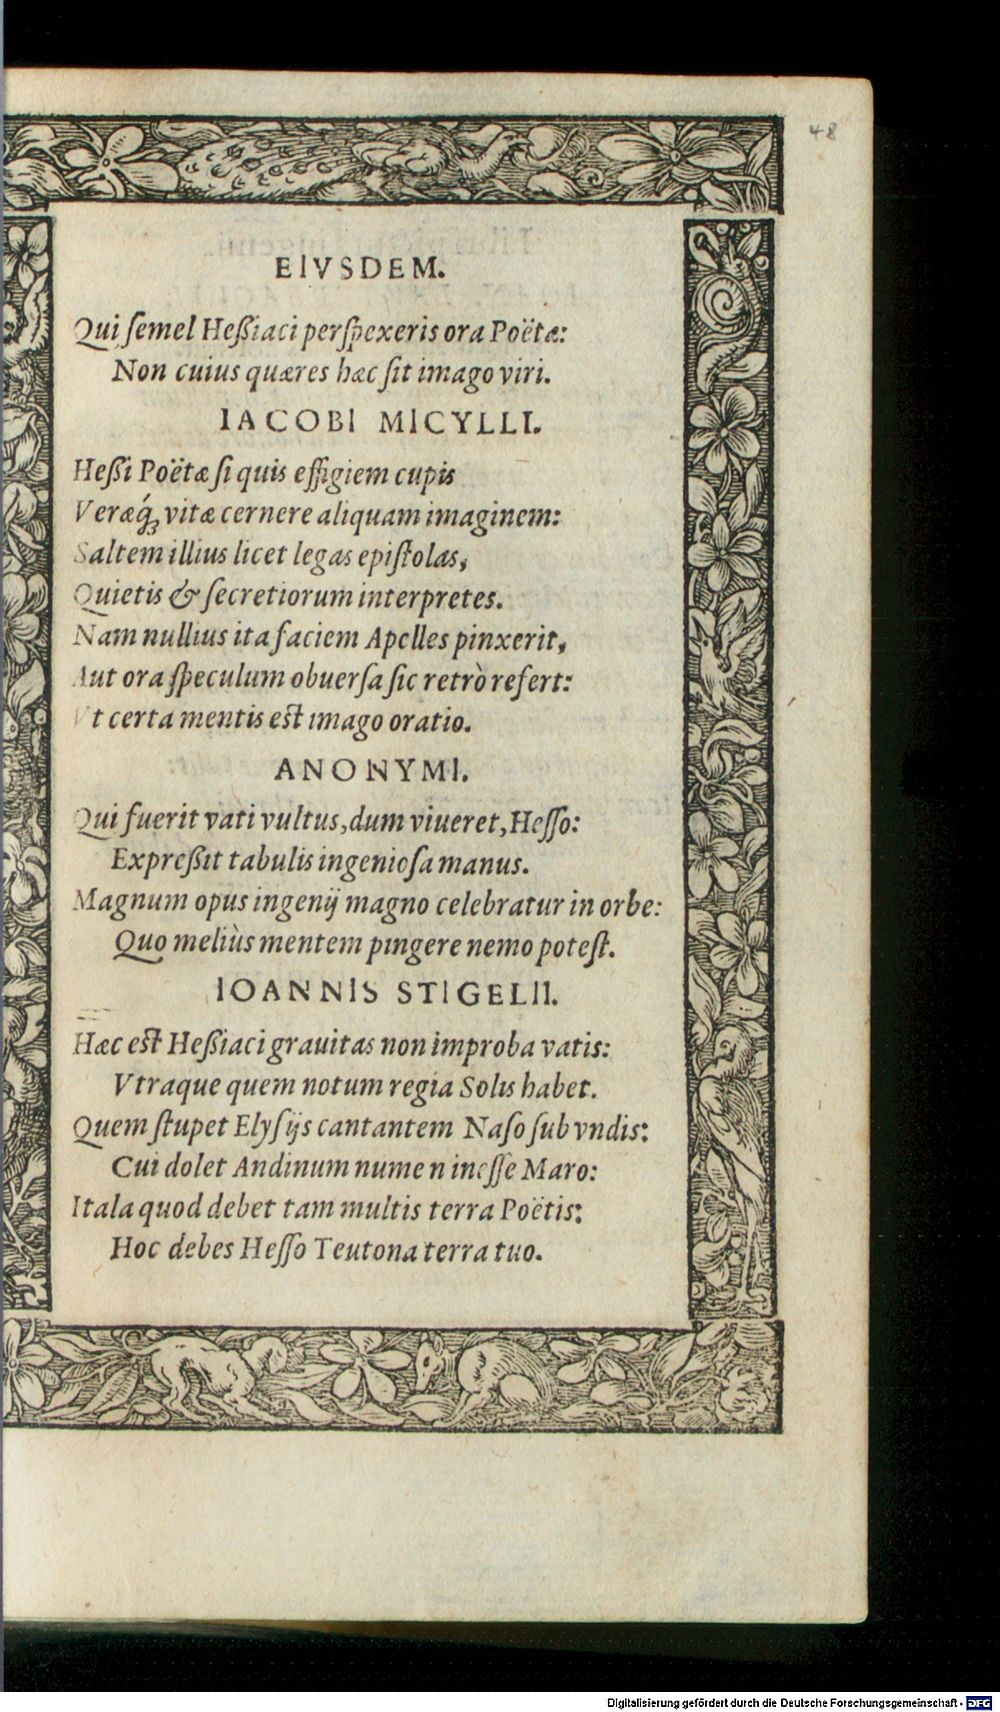 48
EIVSDEM.
Qui ſemel Heßiaci perſpexeris ora Poëtæ:
Non cuius quæres hæc ſit imago viri.
IACOBI MICYLLI.
Heßi Poëtæ ſi quis effigiem cupis
Veræq́ꝫ vitæ cernere aliquam imaginem:
Saltem illius licet legas epiſtolas,
Quietis & ſecretiorum interpretes.
Nam nullius ita faciem Apelles pinxerit,
Aut ora ſpeculum obuerſa ſic retrò refert:
Vt certa mentis eſt imago oratio.
ANONYMI.
Qui fuerit vati vultus, dum viueret, Heſſo:
Expreßit tabulis ingenioſa manus.
Magnum opus ingenij magno celebratur in orbe:
Quo meliùs mentem pingere nemo poteſt.
IOANNIS STIGELII.
Hæc eſt Heßiaci grauitas non improba vatis:
Vtraque quem notum regia Solis habet.
Quem ſtupet Elyſijs cantantem Naſo ſub vndis:
Cui dolet Andinum numen ineſſe Maro:
Itala quod debet tam multis terra Poëtis:
Hoc debes Heſſo Teutona terra tuo.
Digitalisierung gefördert durch die Deutsche Forschungsgemeinschaft - DFG